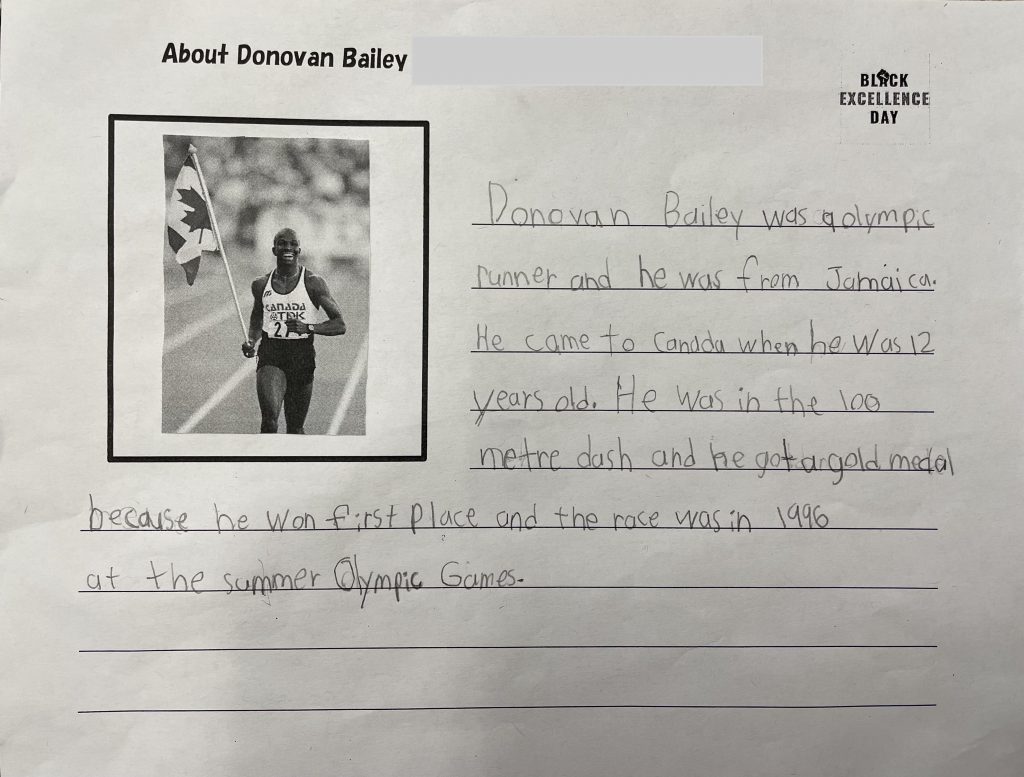 About Donovan Bailey
BLACK
EXCELLENCE
DAY
CANADA
TDK
Donovan Bailey was a olympic
runner and he was from Jamaica.
He came to Canada when he was 12
years old. He was in the 100
metre dash and he got a gold medal
because he won first place and the race was in 1996
at the summer Olympic Games.